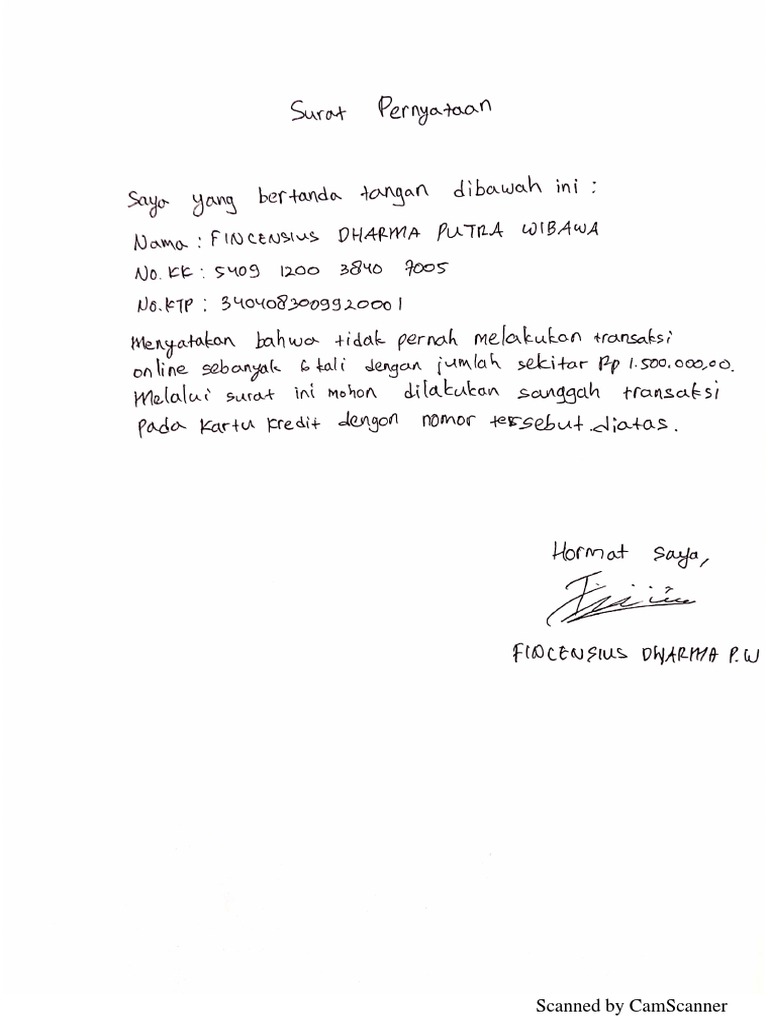 Surat Pernyataan
Saya yang bertanda tangan dibawah ini :
Nama : FINCENSIUS DHARMA PUTRA WIBAWA
No. KK : 5409 1200 3840 7005
No. KTP : 3404083009920001
Menyatakan bahwa tidak pernah melakukan transaksi
online sebanyak 6 kali dengan jumlah sekitar Rp 1.500.000,00.
Melalui surat ini mohon dilakukan sanggah transaksi
pada kartu kredit dengan nomor tersebut diatas.
Hormat saya,
FINCENSIUS DHARMA P.W
Scanned by CamScanner